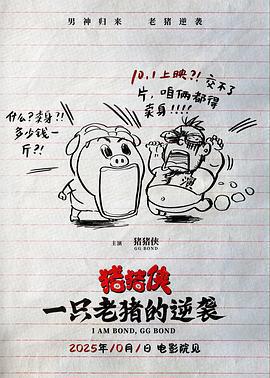 男神归来 老猪逆袭
10.1上映?! 交不了
片，咱俩都得
卖身!!!!
什么?卖身?!
多少钱一
斤?!
演
主演 猪猪侠
GG BOND
猪猪侠
一只老猪的逆袭
I AM BOND, GG BOND
2025年10月1日 电影院见